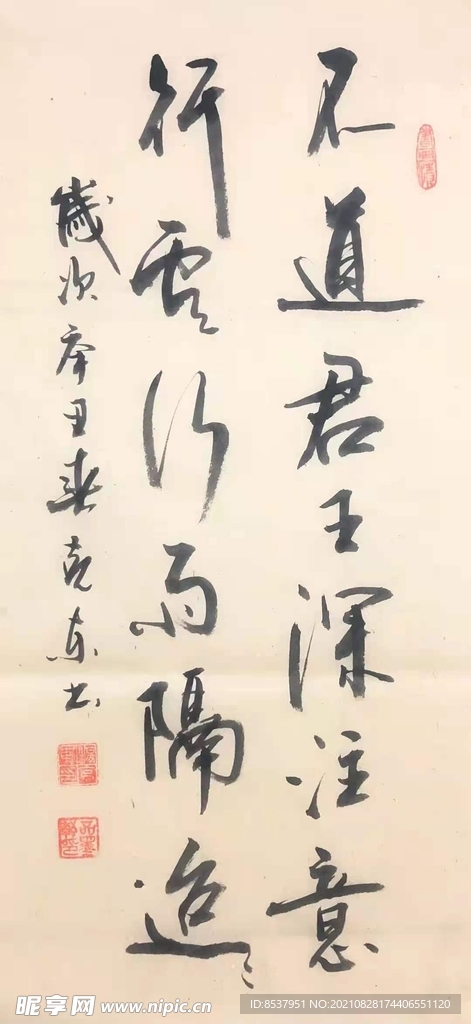 不道君王深注意
行雲行雨隔迢々
歲次辛丑春克东书
昵享网 www.nipic.cn
ID:8537951 NO:20210828174406551120